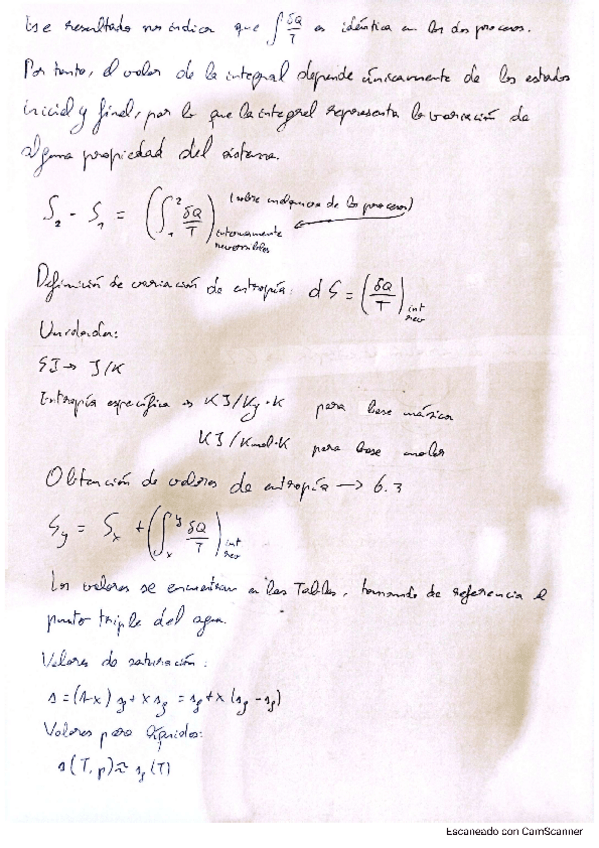 Ese resultado nos indica que ∫ δQ/T es idéntica en los dos procesos.
Por tanto, el valor de la integral depende únicamente de los estados
inicial y final, por lo que la integral representa la variación de
alguna propiedad del sistema.
S₂ - S₁ = (∫₁² δQ/T) internamente reversibles (sobre cualquiera de los procesos)
Definición de variación de entropía: dS = (δQ/T) int rev
Unidades:
SI → J/K
Entropía específica → KJ/Kg·K para base másica
KJ/Kmol·K para base molar
Obtención de valores de entropía → 6.3
S_y = S_x + (∫_x^y δQ/T) int rev
Los valores se encuentran en las Tablas, tomando de referencia el
punto triple del agua.
Valores de saturación:
s = (1-x) s_f + x s_g = s_f + x (s_g - s_f)
Valores para líquidos:
s(T, p) ≈ s_f (T)
Escaneado con CamScanner